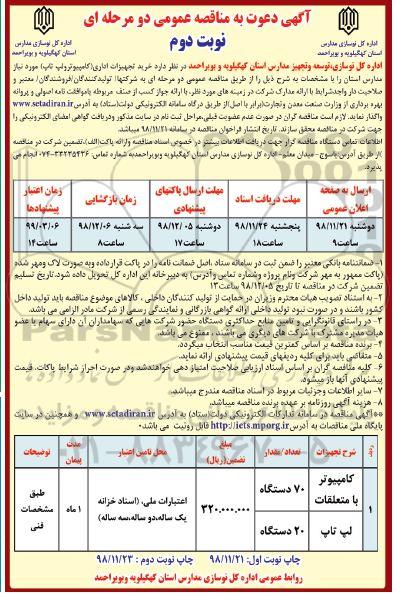 آگهی دعوت به مناقصه عمومی دو مرحله ای
نوبت دوم
اداره کل نوسازی مدارس
استان کهگیلویه و بویراحمد
اداره کل نوسازی مدارس
استان کهگیلویه و بویراحمد
اداره کل نوسازی،توسعه وتجهیز مدارس استان کهگیلویه و بویراحمد در نظر دارد خرید تجهیزات اداری(کامپیوترولپ تاپ) مورد نیاز
مدارس استان را با مشخصات به شرح ذیل را از طریق مناقصه عمومی دو مرحله ای به شرکتها/ تولیدکنندگان/فروشندگان/ معتبر و
صلاحیت دار واجدشرایط با ارائه مدارک شرکت در زمینه های مورد نظر، با ارائه جواز کسب از صنف مربوطه یاموافقت نامه اصولی و پروانه
بهره برداری از وزارت صنعت معدن وتجارت(برابر با اصل از طریق درگاه سامانه الکترونیکی دولت(ستاد) به آدرس www.setadiran.ir
واگذار نماید. لازم است مناقصه گران در صورت عدم عضویت قبلی،مراحل ثبت نام در سایت مذکور ودریافت گواهی امضای الکترونیکی را
جهت شرکت در مناقصه محقق سازند. تاریخ انتشار فراخوان مناقصه در سامانه ۹۸/۱۱/۲۱ میباشد.
اطلاعات تماس دستگاه مناقصه گزار جهت دریافت اطلاعات بیشتر در خصوص اسناد مناقصه وارائه پاکت(الف)،تضمین شرکت در مناقصه
)از طریق آدرس یاسوج- میدان معلم- اداره کل نوسازی مدارس استان کهگیلویه وبویراحمدبه شماره تماس: ۳۳۲۳۵۴۳۶-۰۷۴ انجام می
پذیرد.
ارسال به صفحه اعلان عمومی
مهلت دریافت اسناد
مهلت ارسال پاکتهای پیشنهادی
زمان بازگشایی
زمان اعتبار پیشنهادها
دوشنبه ۹۸/۱۱/۲۱ ساعت۹
پنجشنبه ۹۸/۱۱/۲۴ ساعت۱۸
دوشنبه ۹۸/۱۲/۰۵ ساعت۱۷
سه شنبه ۹۸/۱۲/۰۶ ساعت۸
۹۹/۰۳/۰۶ ساعت۱۴
۱-ضمانتنامه بانکی معتبر را ضمن ثبت در سامانه ستاد ،اصل ضمانت نامه را در پاکت قرارداده وبه صورت لاک ومهر شده
(پاکت ممهور به مهر شرکت ونام پروژه وشماره تماس وآدرس) به دبیرخانه این اداره کل تحویل داده شود.تاریخ تسلیم
تضمین شرکت در مناقصه تا تاریخ ۹۸/۱۲/۰۵ ساعت۱۳
۲- به استناد تصویب هیات محترم وزیران در حمایت از تولید کنندگان داخلی ، کالاهای موضوع مناقصه باید تولید داخل
کشور باشند و در صورت نبود تولید داخلی ارائه گواهی بازرگانی و نمایندگی رسمی از شرکت مادر الزامی می باشد.
۳- در راستای قانونگرایی و تامین منابع حداکثری دستگاه حضور شرکت هایی که سهامداران آن دارای سهام یا عضو
هیات مدیره مشترک با شرکت های دیگری می باشند ، ممنوع می باشد.
۴- برنده مناقصه بر اساس کمترین قیمت مناسب انتخاب میگردد.
۵- متقاضی باید برای کلیه ردیفهای قیمت پیشنهادی ارائه نماید.
۶- کلیه مناقصه گران بر اساس اسناد ارزیابی صلاحیت امتیاز دهی خواهندشد ودر صورت احراز شرایط پاکات، قیمت
پیشنهادی آنها باز میشود.
۷- سایر اطلاعات وجزئیات مربوط در اسناد مناقصه مندرج میباشد.
۸- هزینه آگهی روزنامه بر عهده برنده مناقصه میباشد.
**آگهی مناقصه در سامانه تدارکات الکترونیکی دولت(ستاد) به آدرس www.setadiran.ir و همچنین در سایت
پایگاه ملی مناقصات به آدرس http://iets.mporg.ir قابل رویت می باشد.
ردیف
شرح تجهیزات
تعداد/مقدار
مبلغ تضمین(ریال)
محل تامین اعتبار
مدت پیمان
توضیحات
۱
کامپیوتر با متعلقات
۷۰ دستگاه
لپ تاپ
۲۰ دستگاه
۳۲۰.۰۰۰.۰۰۰
اعتبارات ملی، (اسناد خزانه یک ساله،دو ساله،سه ساله)
۱ ماه
طبق مشخصات فنی
چاپ نوبت اول: ۹۸/۱۱/۲۱ چاپ نوبت دوم : ۹۸/۱۱/۲۳
روابط عمومی اداره کل نوسازی مدارس استان کهگیلویه وبویراحمد